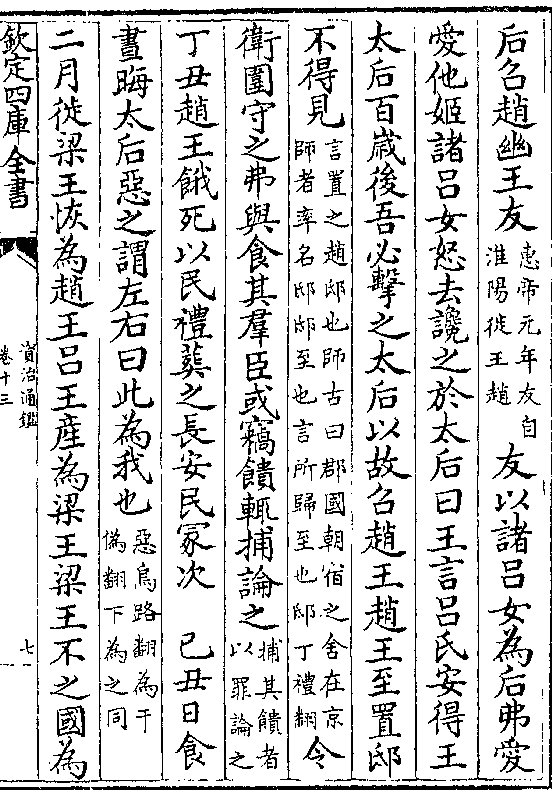 后召趙幽王友惠帝元年友自淮陽徙王趙友以諸吕女為后弗愛
愛他姬諸吕女怒去讒之於太后曰王言吕氏安得王
太后百嵗後吾必擊之太后以故召趙王趙王至置邸
不得見言置之趙邸也師古曰郡國朝宿之舍在京師者率名邸邸至也言所歸至也邸丁禮翻令
衛圍守之弗與食其羣臣或竊饋輒捕論之捕其饋者以罪論之
丁丑趙王餓死以民禮葬之長安民冢次 己丑日食
晝晦太后惡之謂左右曰此為我也惡烏路翻為于偽翻下為之同
二月徙梁王恢為趙王吕王產為梁王梁王不之國為
欽定四庫全書
資治通鑑
卷十三
七